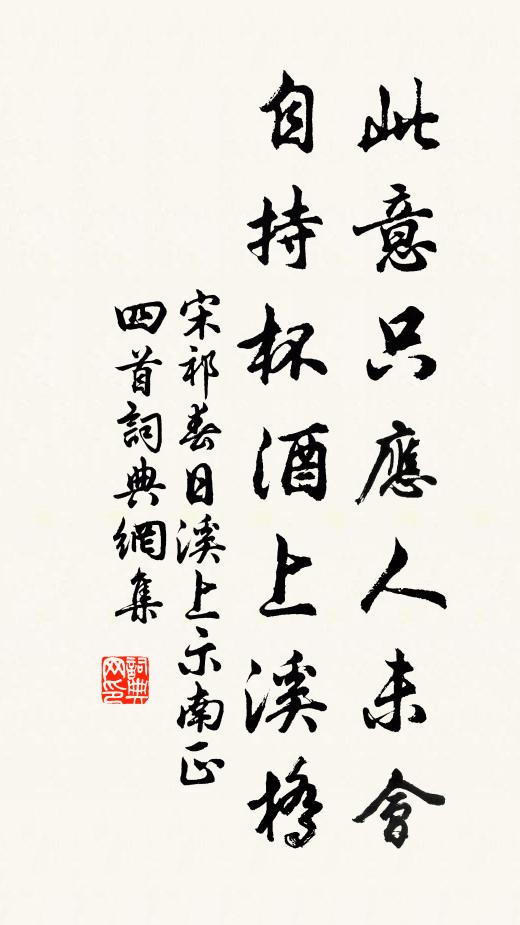 此意只應人未會
自持杯酒上溪橋
宋祁春日溪上示南正
四首詞典網集
詞典網印